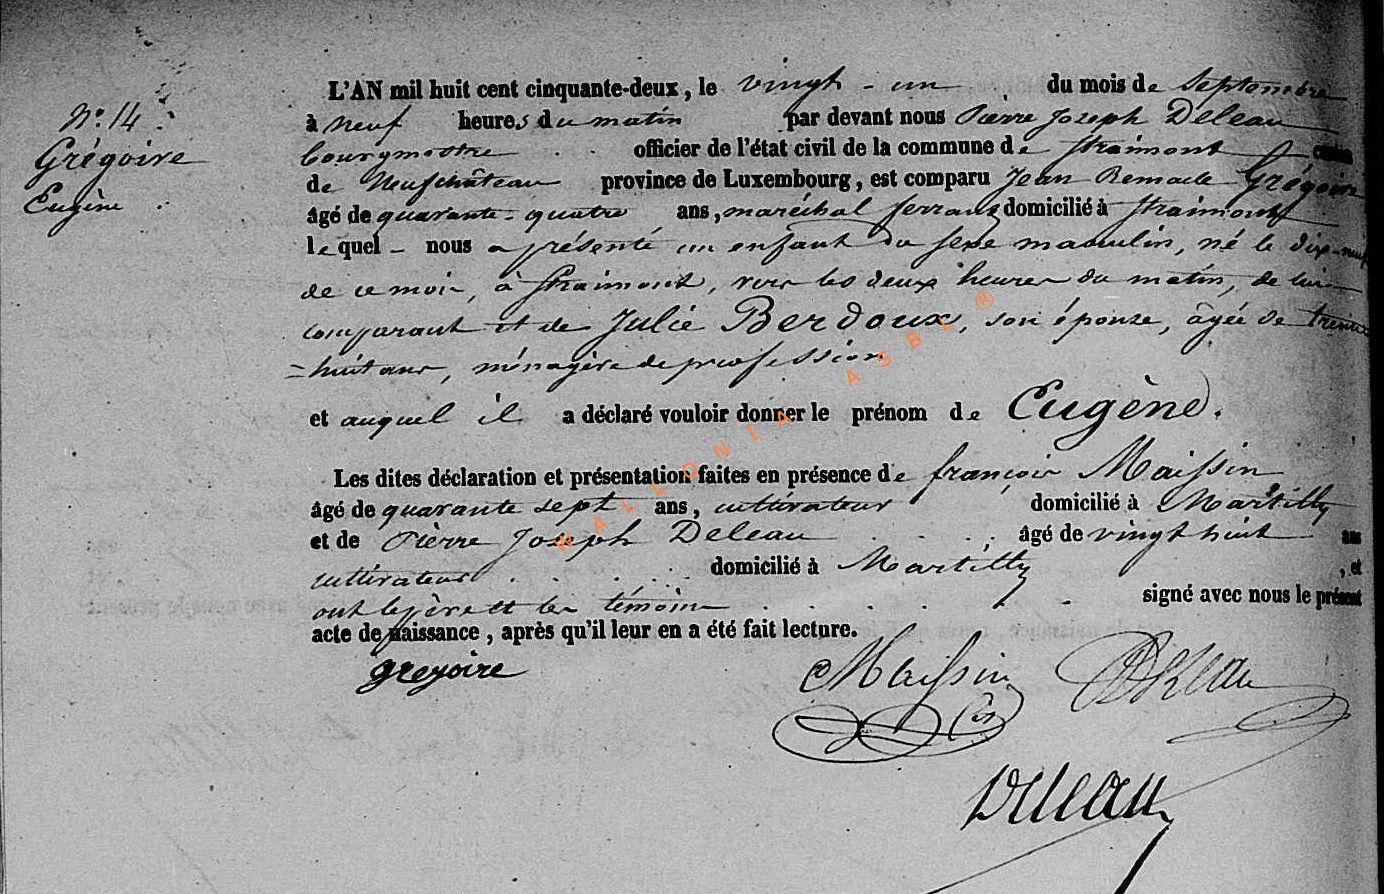 N.° 14.
Grégoire
Eugène.
L'AN mil huit cent cinquante-deux, le vingt-un du mois de Septembre
à neuf heures du matin par devant nous Pierre Joseph Deleau
bourgmestre officier de l'état civil de la commune de Straimont canton
de Neufchâteau province de Luxembourg, est comparu Jean Remacle Grégoire
âgé de quarante-quatre ans, maréchal ferrant domicilié à Straimont
lequel nous a présenté un enfant du sexe masculin, né le dix-neuf
de ce mois, à Straimont, vers les deux heures du matin, de lui
comparant et de Julie Berdoux, son épouse, âgée de trente
=huit ans, ménagère de profession
et auquel il a déclaré vouloir donner le prénom de Eugène.
Les dites déclaration et présentation faites en présence de françois Maissin
âgé de quarante sept ans, cultivateur domicilié à Martilly
et de Pierre Joseph Deleau âgé de vingt huit ans
cultivateur domicilié à Martilly , et
ont le père et les témoins signé avec nous le présent
acte de naissance, après qu'il leur en a été fait lecture.
gregoire Maissin Deleau
Deleau
WALLONIA ASBL ®